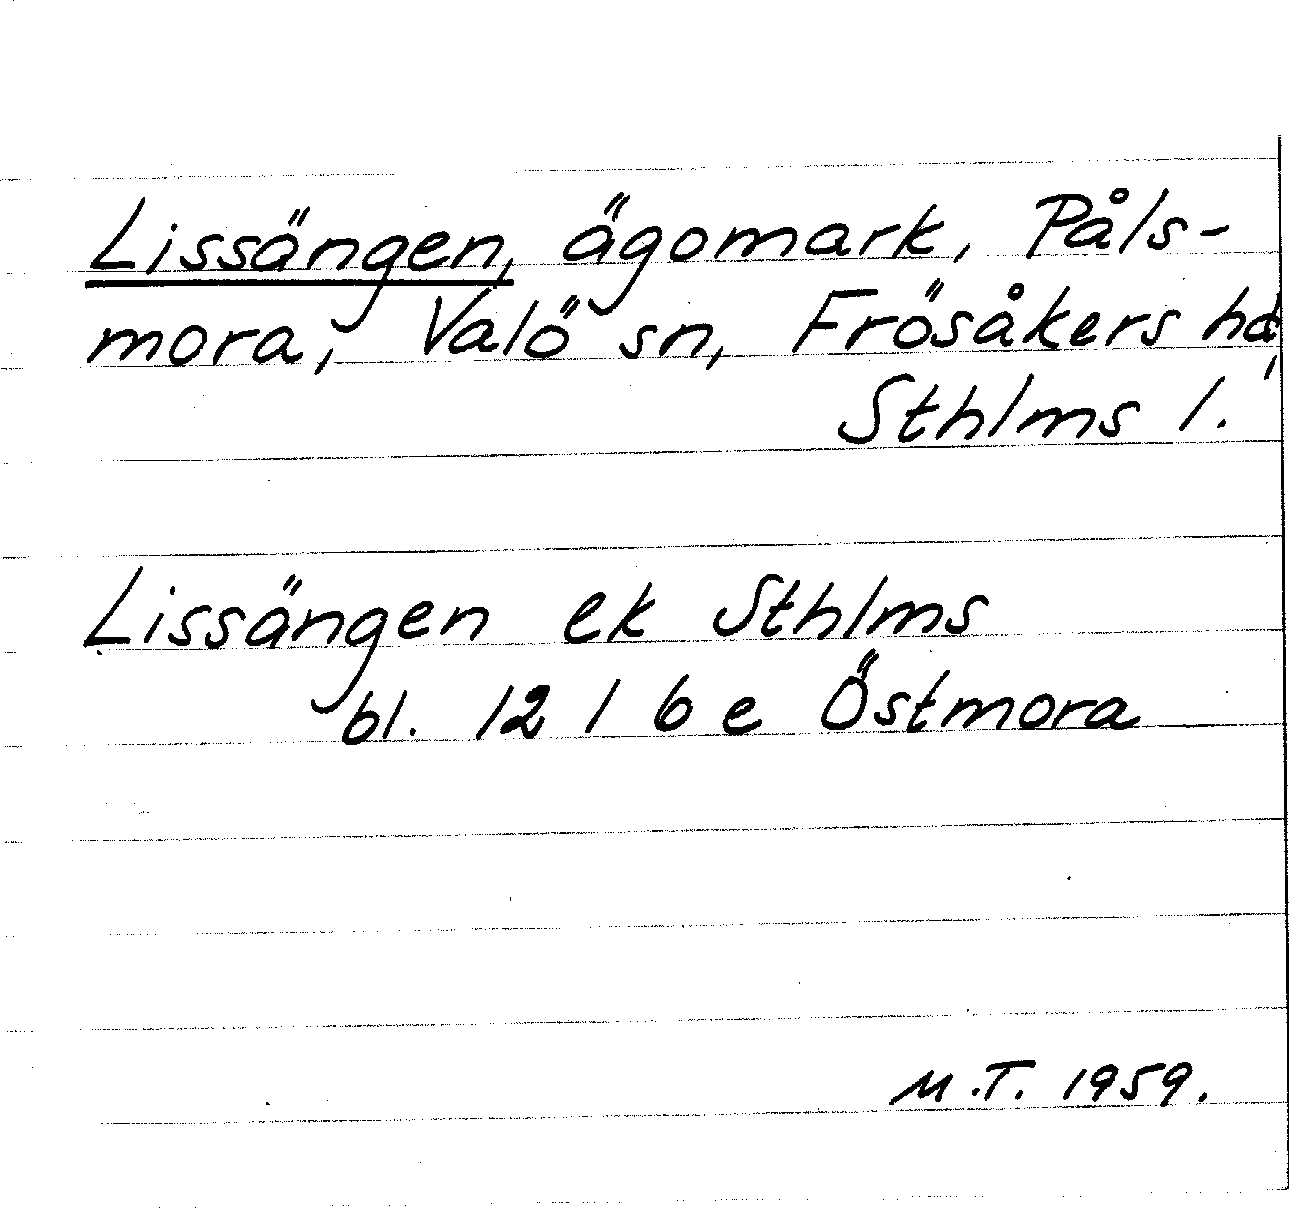 Lissängen, ägomark, Påls-
mora, Valö sn, Frösåkers hd,
Sthlms l.
Lissängen ek Sthlms
bl. 12 I 6 e Östmora
M.T. 1959.